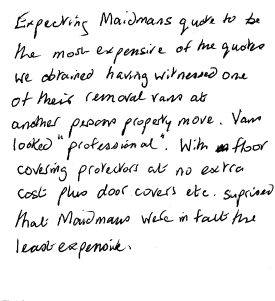 Expecting Maidmans quote to be
the most expensive of the quotes
we obtained having witnessed one
of their removal vans at
another persons property move. Van
looked "professional". With floor
covering protectors at no extra
cost plus door covers etc. suprised
that Maidmans were in fact the
least expensive.